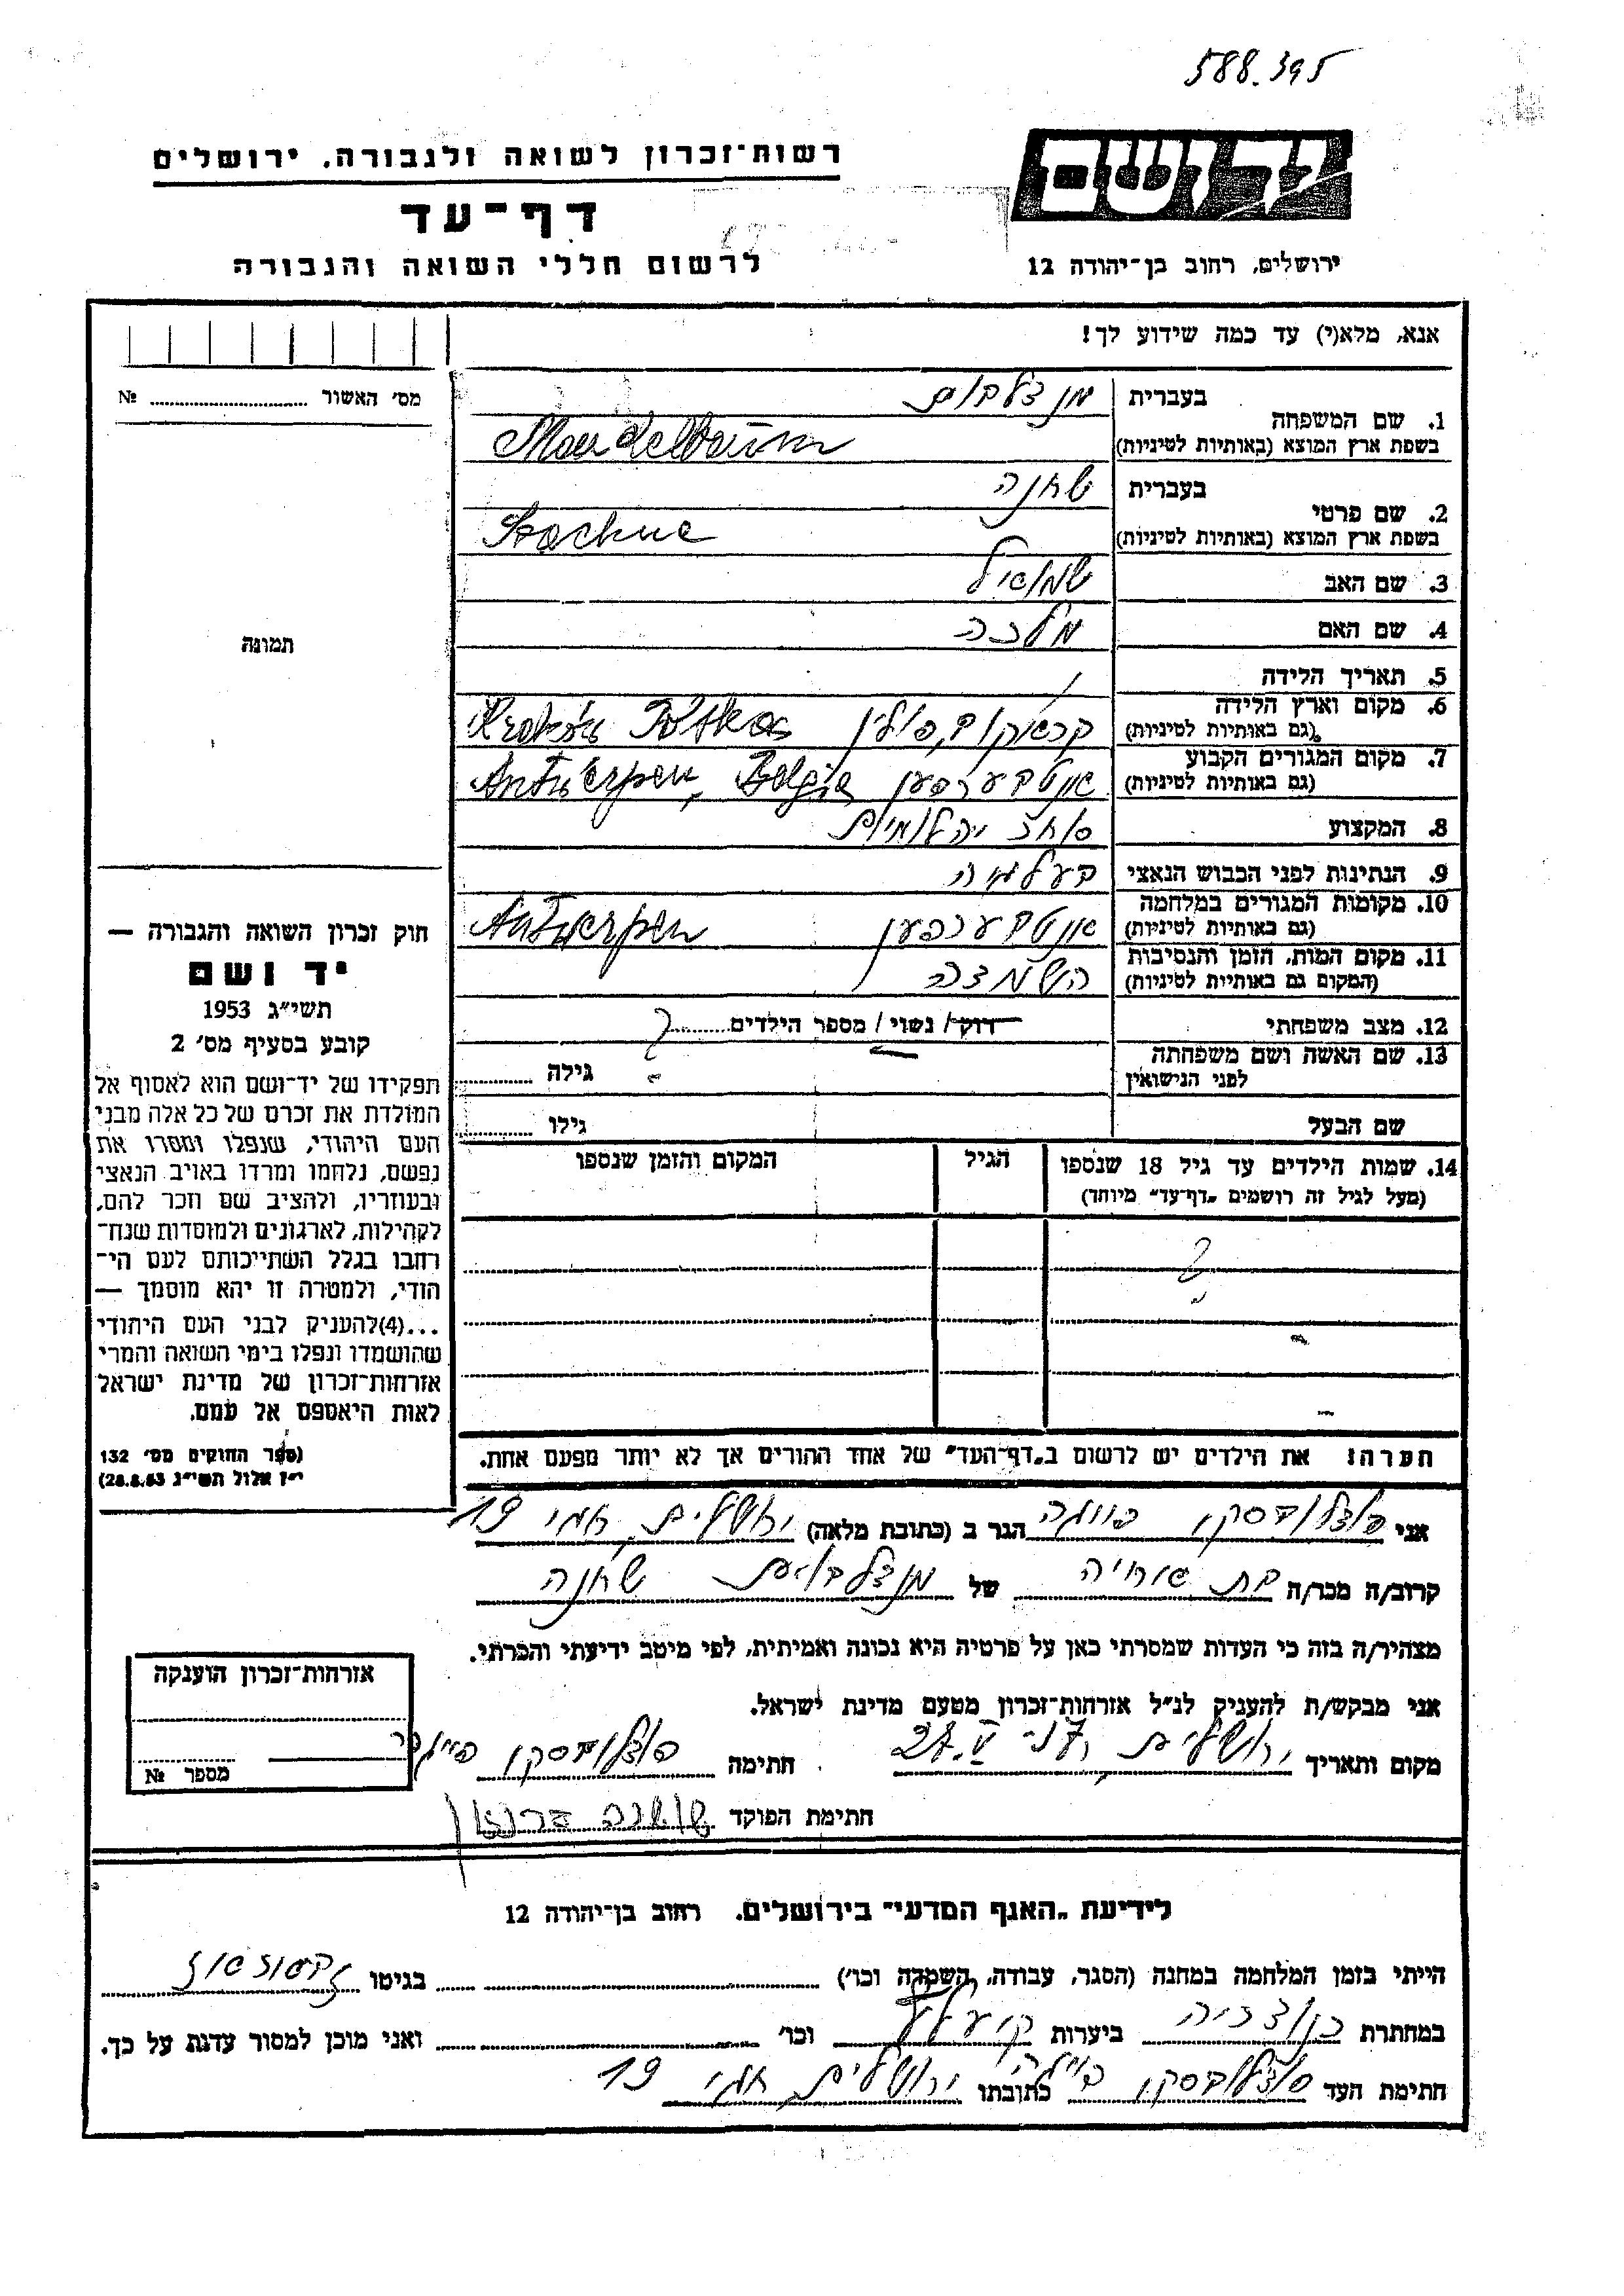 588.395
רשות־זכרון לשואה ולגבורה. ירושלים
דף־עד
לרשום חללי השואה והגבורה
ירושלים, רחוב בן־יהודה 12
אנא, מלא(י) עד כמה שידוע לך!
מס׳ האשור № 
תמונה
1. שם המשפחה בעברית מנדלבוים
בשפת ארץ המוצא (באותיות לטיניות) Mandelbaum
2. שם פרטי בעברית שחנה
בשפת ארץ המוצא (באותיות לטיניות)
3. שם האב שמואיל
4. שם האם מלכה
5. תאריך הלידה
6. מקום וארץ הלידה (גם באותיות לטיניות) קראקוב, פולין Kraków Polska
7. מקום המגורים הקבוע (גם באותיות לטיניות) אנטבערפען Antwerpen, Belgia
8. המקצוע סוחר יהלומים
9. הנתינות לפני הכבוש הנאצי בעלגיה
10. מקומות המגורים במלחמה (גם באותיות לטיניות) אנטבערפען Antwerpen
11. מקום המות, הזמן והנסיבות (המקום גם באותיות לטיניות) השמדה
12. מצב משפחתי רוק/ נשוי/ מספר הילדים ?
13. שם האשה ושם משפחתה לפני הנישואין גילה
שם הבעל גילו
14. שמות הילדים עד גיל 18 שנספו הגיל המקום והזמן שנספו
(מעל לגיל זה רושמים „דף־עד” מיוחד)
?
הערה: את הילדים יש לרשום ב„דף־העד” של אחד ההורים אך לא יותר מפעם אחת.
חוק זכרון השואה והגבורה —
יד ושם
תשי״ג 1953
קובע בסעיף מס׳ 2
תפקידו של יד־ושם הוא לאסוף אל
המולדת את זכרם של כל אלה מבני
העם היהודי, שנפלו ומסרו את
נפשם, נלחמו ומרדו באויב הנאצי
ובעוזריו, ולהציב שם וזכר להם,
לקהילות, לארגונים ולמוסדות שנח־
רבו בגלל השתייכותם לעם הי־
הודי, ולמטרה זו יהא מוסמך —
...(4) להעניק לבני העם היהודי
שהושמדו ונפלו בימי השואה והמרי
אזרחות־זכרון של מדינת ישראל
לאות היאספם אל עמם.
(ספר החוקים מס׳ 132
י״ז אלול תשי״ג 28.8.53)
אני הגר ב (כתובת מלאה) ירושלים 19
קרוב/ה מכר/ה בת אחיה של מנדלבוים שחנה
מצהיר/ה בזה כי העדות שמסרתי כאן על פרטיה היא נכונה ואמיתית, לפי מיטב ידיעתי והכרתי.
אני מבקש/ת להעניק לנ״ל אזרחות־זכרון מטעם מדינת ישראל.
מקום ותאריך ירושלים 27.V חתימה
חתימת הפוקד
אזרחות־זכרון הוענקה
מספר №
לידיעת „האגף המדעי” בירושלים. רחוב בן־יהודה 12
הייתי בזמן המלחמה במחנה (הסגר, עבודה, השמדה וכו׳) בגיטו
במחתרת ביערות וכו׳ ואני מוכן למסור עדות על כך.
חתימת העד כתובתו ירושלים 19